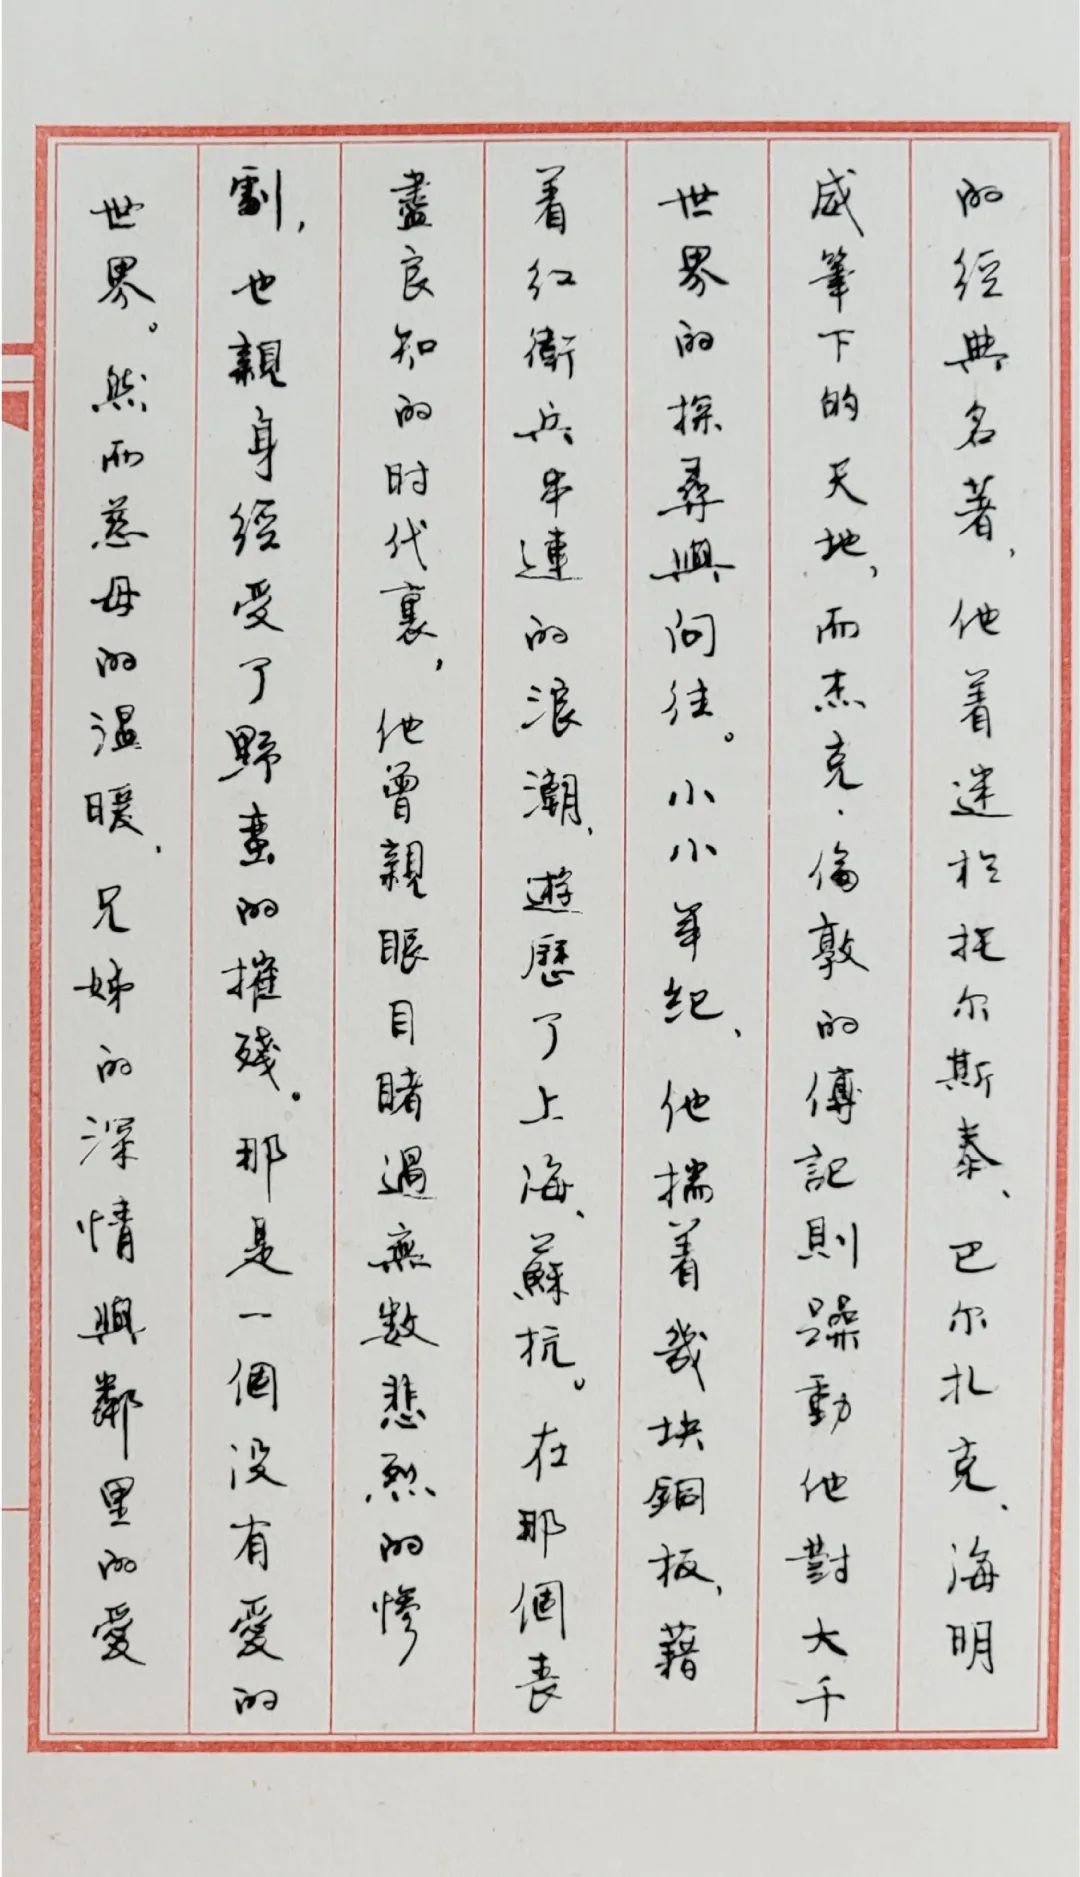 的經典名著，他着迷於托尔斯泰、巴尔扎克、海明
威筆下的天地，而杰克·倫敦的傳記則躁動他對大千
世界的探尋與向往。小小年纪，他揣着幾块銅板，藉
着红衛兵串連的浪潮，遊歷了上海、蘇杭。在那個丧
盡良知的时代裏，他曾親眼目睹過無数悲烈的慘
劇，也親身經受了野蛮的摧殘。那是一個没有爱的
世界。然而慈母的温暖，兄姊的深情與鄰里的愛